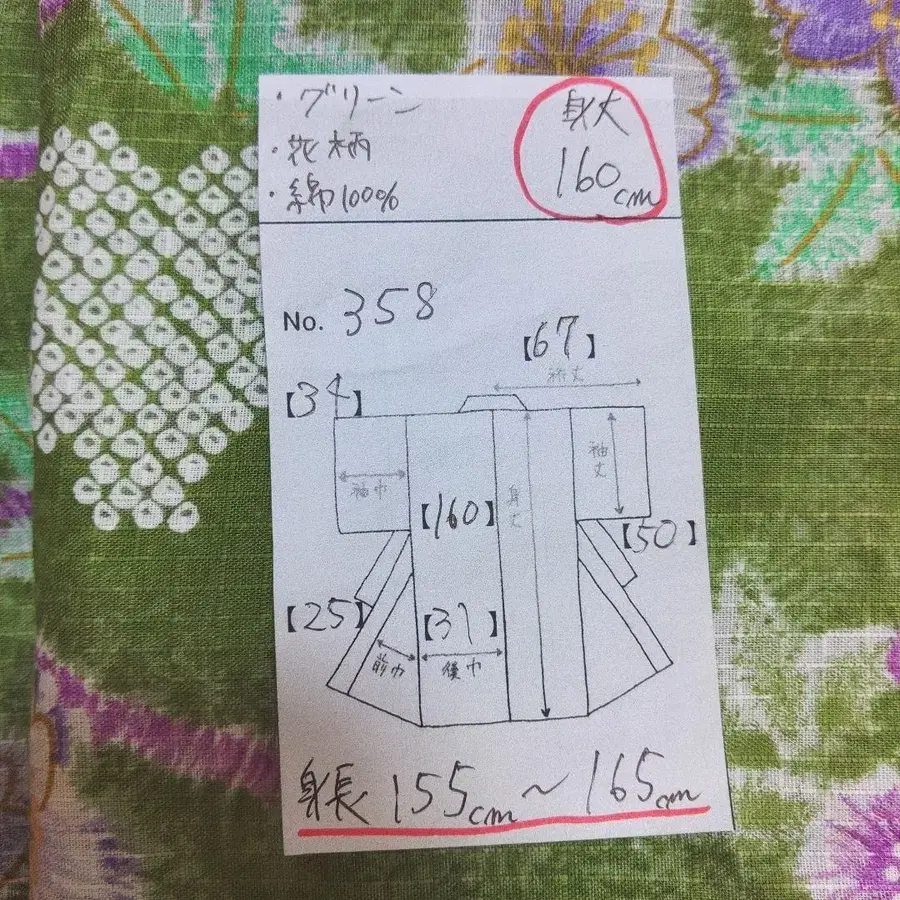 ・グリーン
・花柄
・綿100%
身丈
160cm
No. 358
【67】
裄丈
【34】
袖巾
袖丈
【160】
身丈
【50】
【25】
【31】
前巾
後巾
身長 155cm～165cm